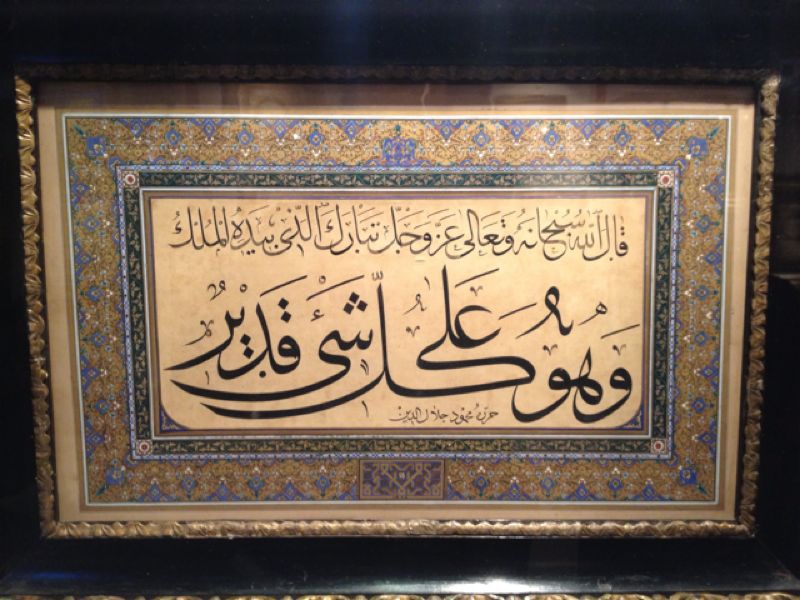 قال الله سبحانه وتعالى عز وجل تبارك الذى بيده الملك
وهو على كل شئ قدير
حرره محمود جلال الدين